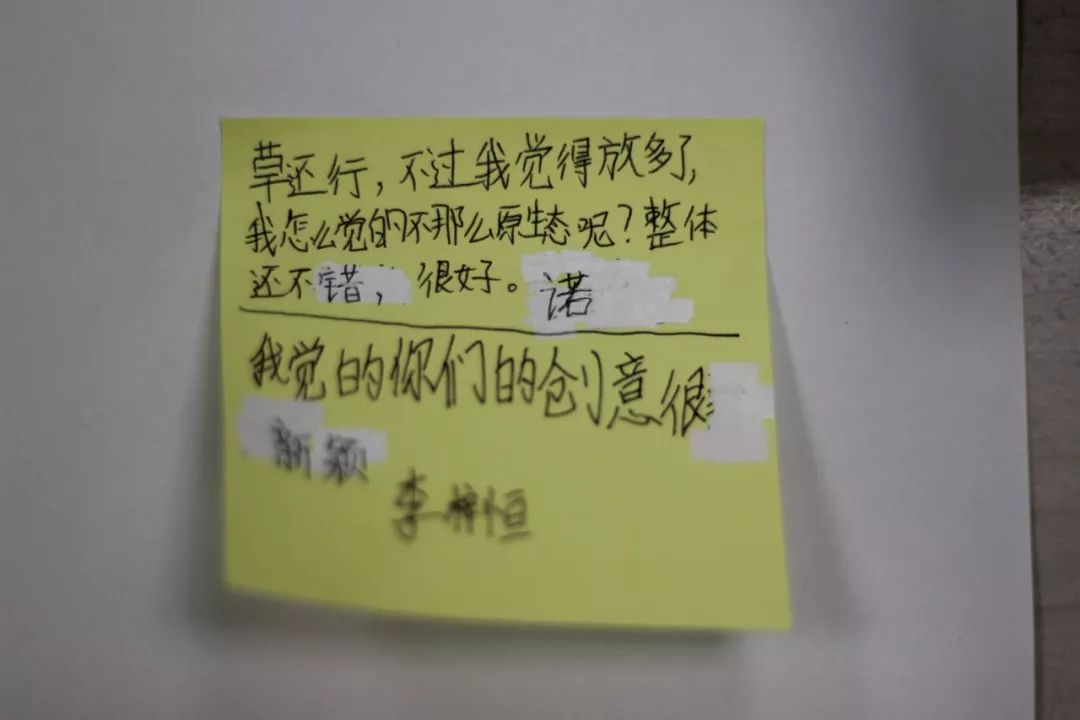 草还行，不过我觉得放多了，
我怎么觉的不那么原生态呢？整体
还不错，很好。诺
我觉的你们的创意很
新颖
李梓恒